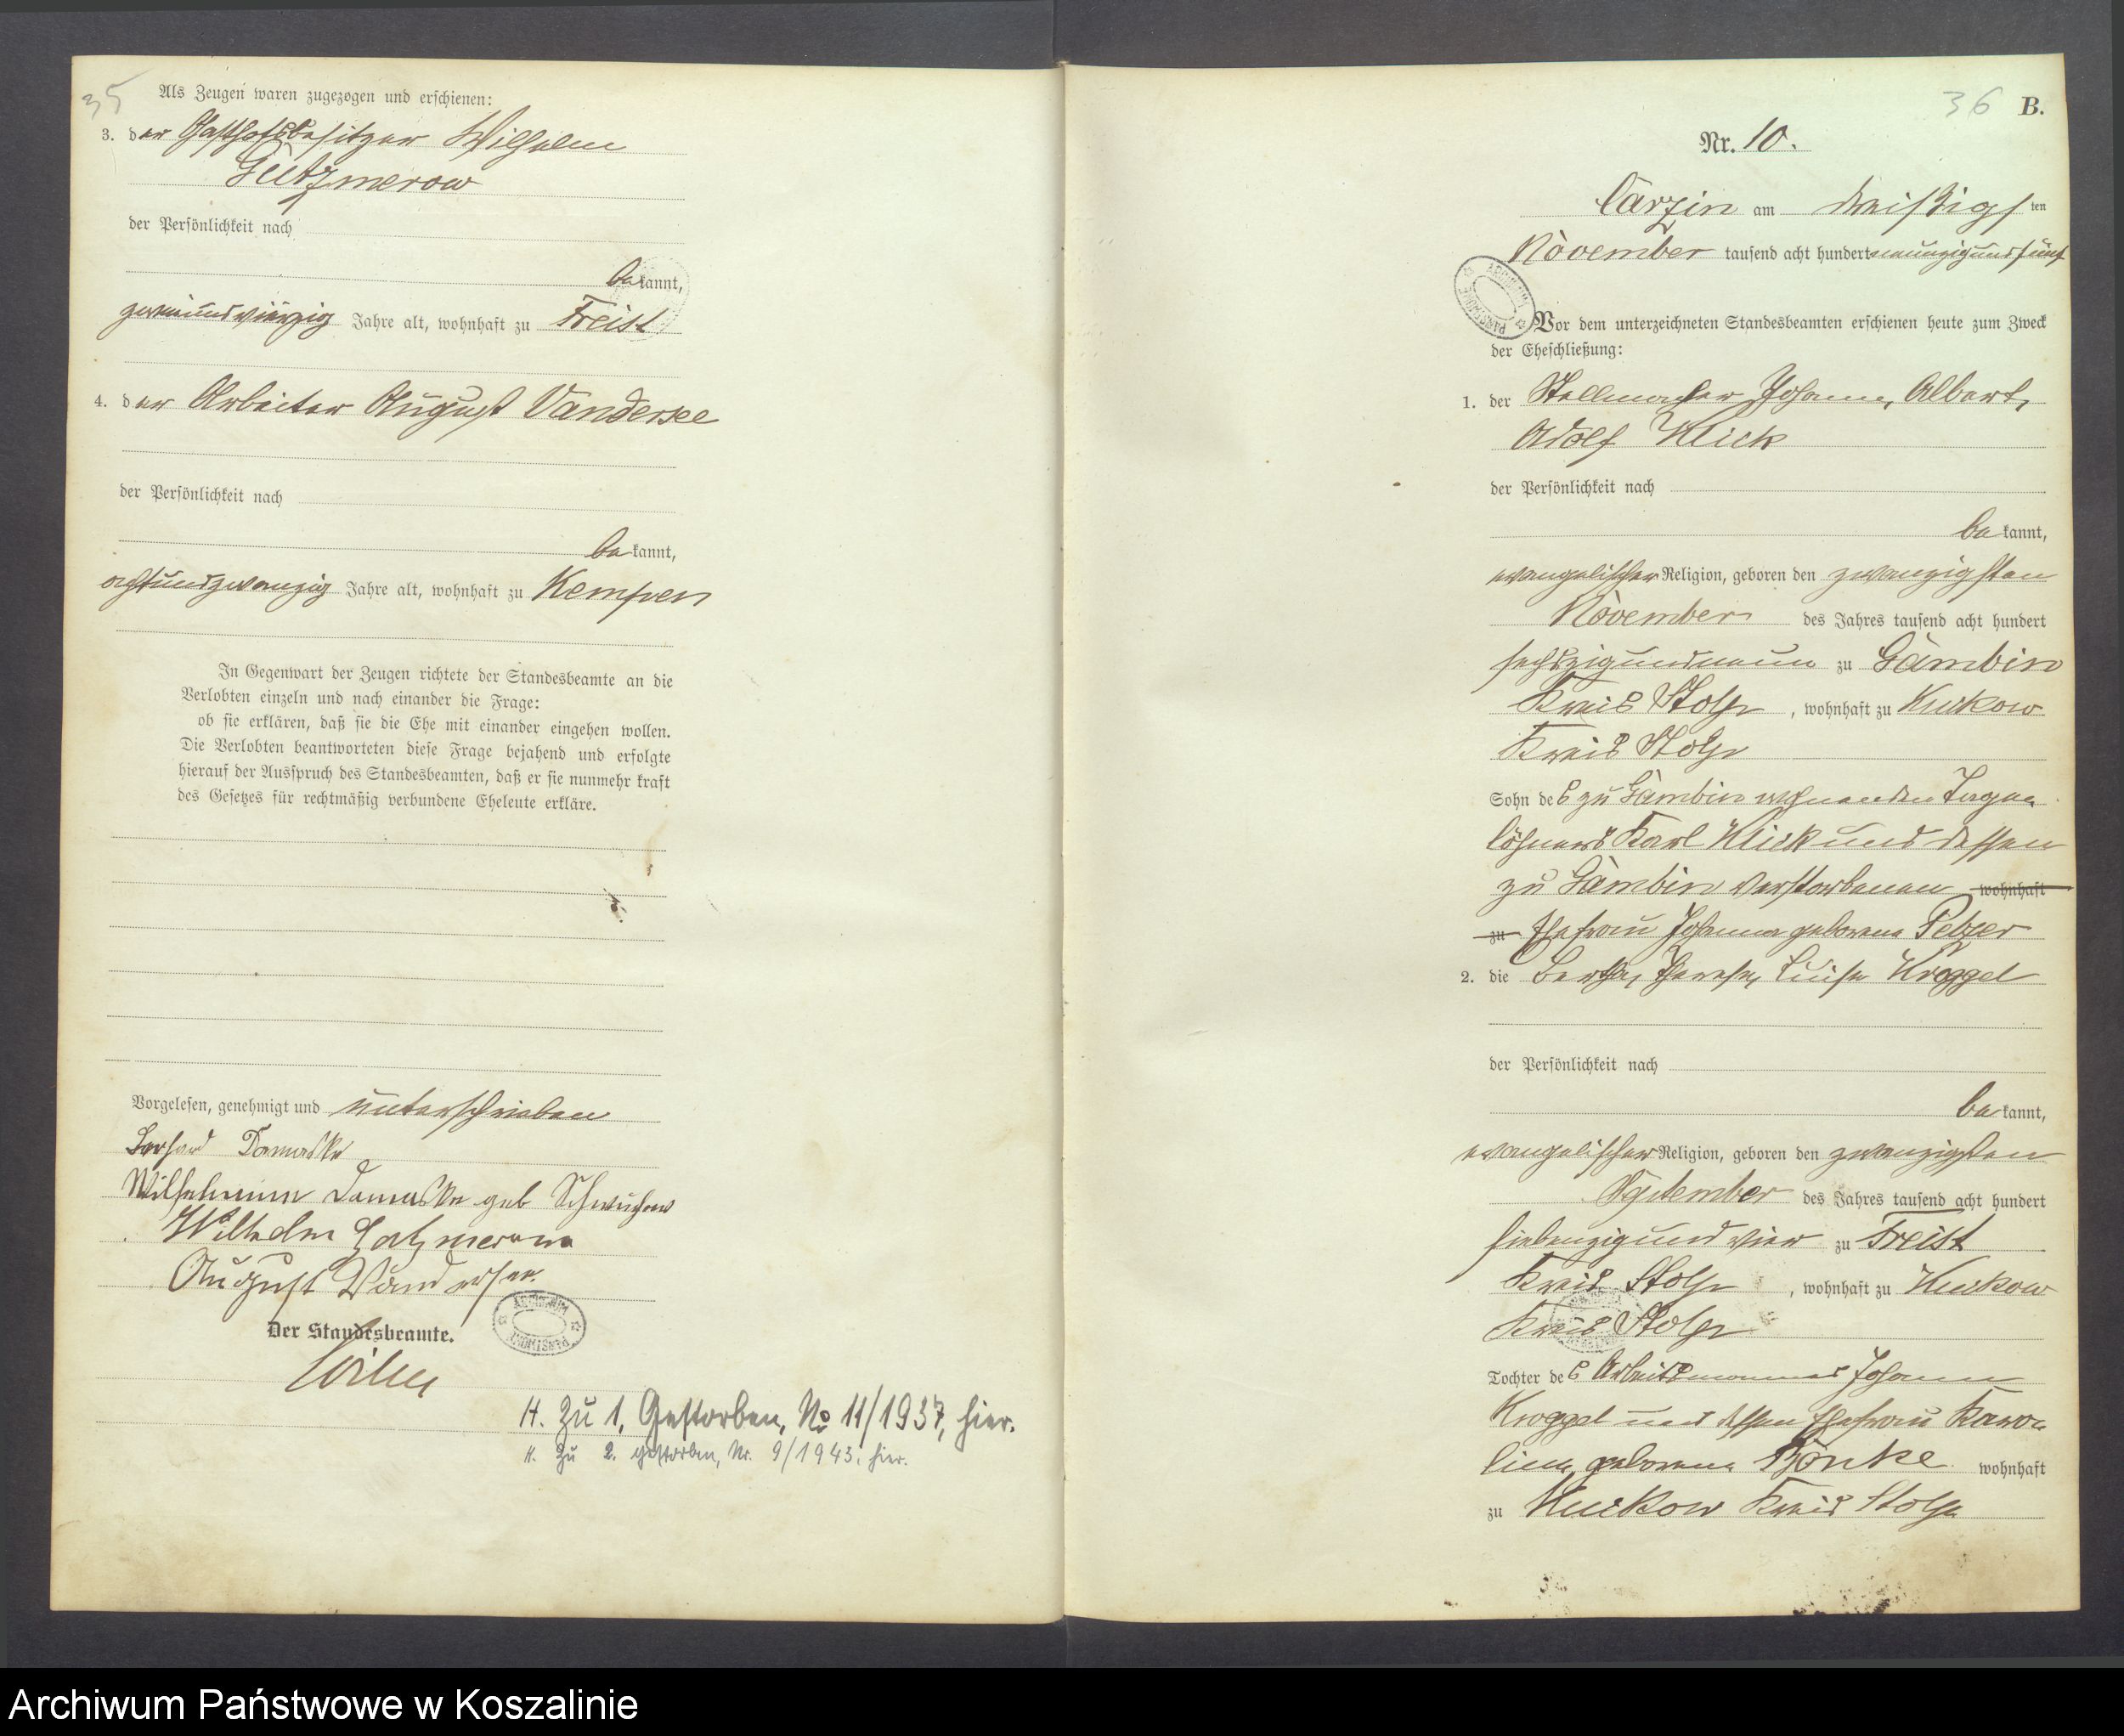 35
Als Zeugen waren zugezogen und erschienen:
3. der Gasthofsbesitzer Wilhelm
Gutzmerow
der Persönlichkeit nach
bekannt,
zweiundvierzig Jahre alt, wohnhaft zu Freist
4. der Arbeiter August Vandersee
der Persönlichkeit nach
bekannt,
achtundzwanzig Jahre alt, wohnhaft zu Kempen
In Gegenwart der Zeugen richtete der Standesbeamte an die
Verlobten einzeln und nach einander die Frage:
ob sie erklären, daß sie die Ehe mit einander eingehen wollen.
Die Verlobten beantworteten diese Frage bejahend und erfolgte
hierauf der Ausspruch des Standesbeamten, daß er sie nunmehr kraft
des Gesetzes für rechtmäßig verbundene Eheleute erkläre.
Vorgelesen, genehmigt und unterschrieben
Damaske
Wilhelmine Damaske geb
Wilhelm Gutzmerow
August Vandersee
Der Standesbeamte.
H. Zu 1, Gestorben, No 11/1937, hier.
H. Zu 2. gestorben, Nr. 9/1943. hier.
36 B.
Nr. 10.
Carzin am dreißigsten
November tausend acht hundert neunzigundfünf
Vor dem unterzeichneten Standesbeamten erschienen heute zum Zweck
der Eheschließung:
1. der Stellmacher Johann, Albert,
Adolf Klick
der Persönlichkeit nach
bekannt,
evangelischer Religion, geboren den zwanzigsten
November des Jahres tausend acht hundert
sechszigundneun zu Gambin
Kreis Stolp, wohnhaft zu Kukow
Kreis Stolp
Sohn des zu Gambin wohnenden Tage-
löhners Karl Klick und dessen
zu Gambin verstorbenen wohnhaft
zu Ehefrau Johanna geborene
2. die Bertha, Therese, Luise Kroggel
der Persönlichkeit nach
bekannt,
evangelischer Religion, geboren den zwanzigsten
September des Jahres tausend acht hundert
siebenzigundvier zu Freist
Kreis Stolp, wohnhaft zu Kukow
Kreis Stolp
Tochter des Arbeitsmannes Johann
Kroggel und dessen Ehefrau Karo-
line, geborene wohnhaft
zu Kukow Kreis Stolp
Archiwum Państwowe w Koszalinie